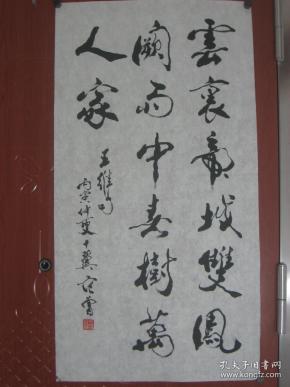 雲裏帝城雙鳳
闕雨中春樹萬
人家
王維句
丙寅仲夏十翼范曾
孔夫子旧书网